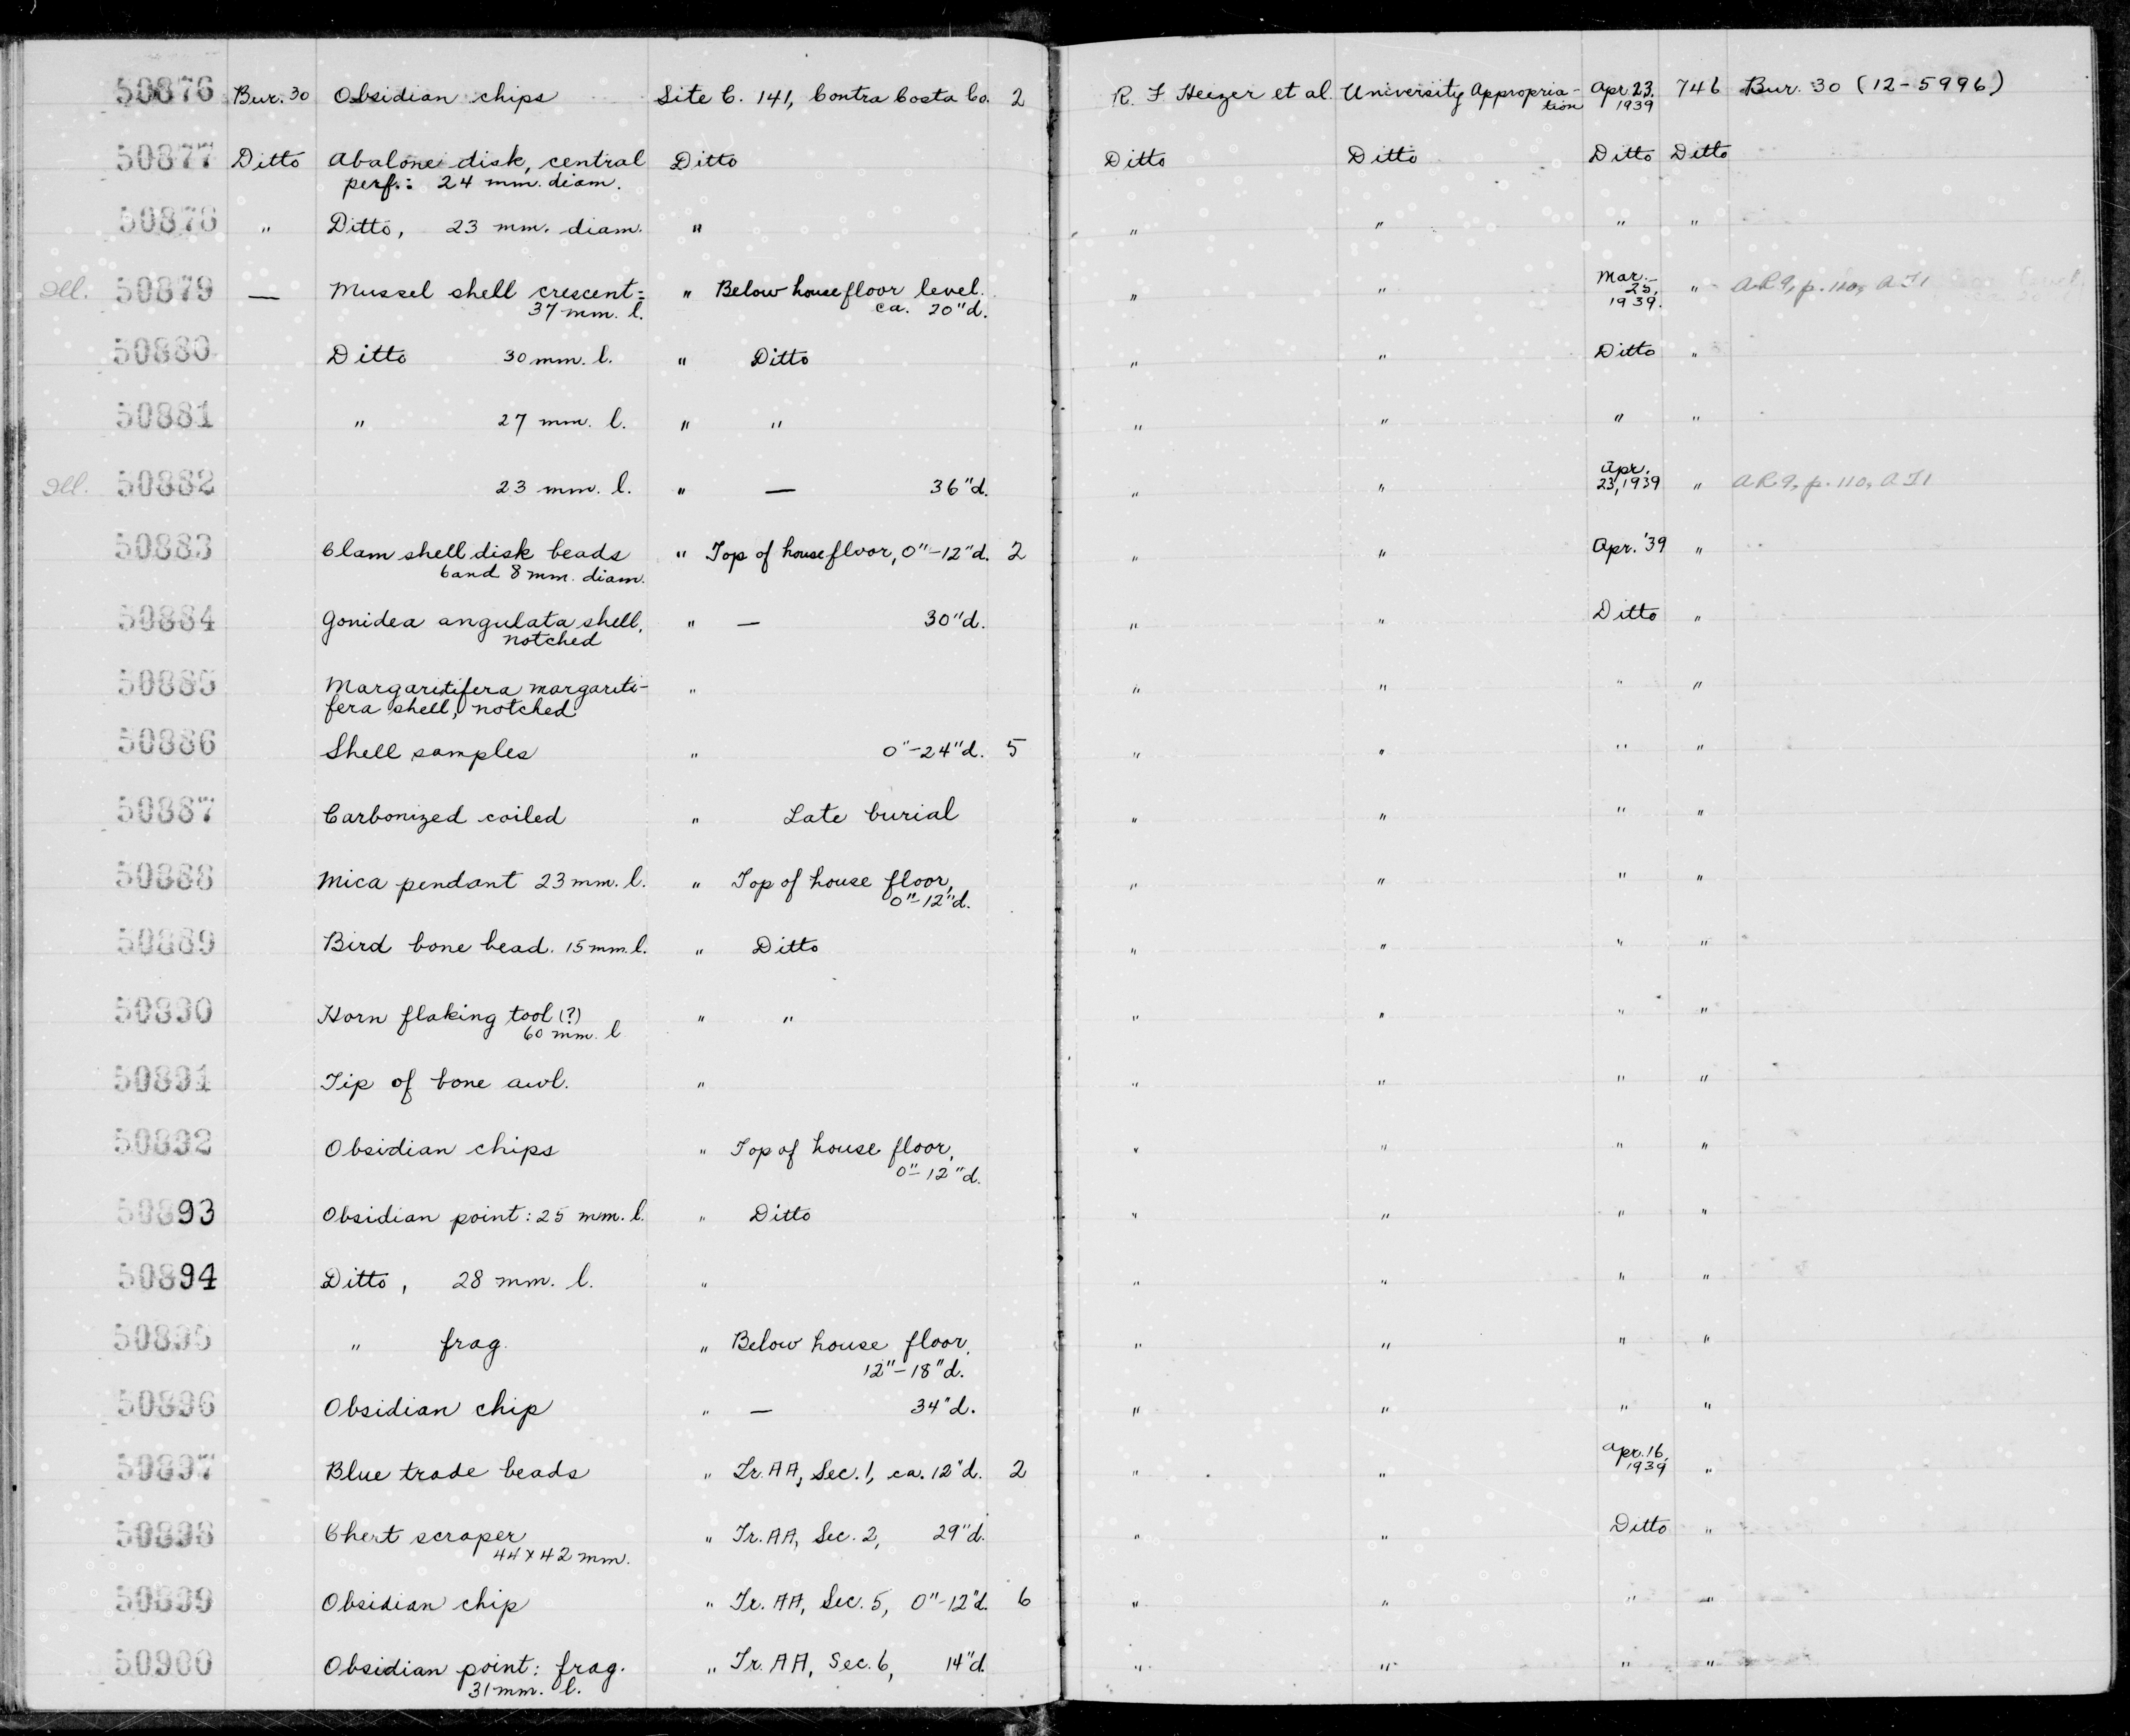 50876 Bur. 30 Obsidian chips Site C. 141, Contra Costa Co. 2 R. F. Heizer et al. University Appropria- Apr. 23, 746 Bur. 30 (12-5996)
tion 1939
50877 Ditto Abalone disk, central Ditto Ditto Ditto Ditto Ditto
perf.: 24 mm. diam.
50878 " Ditto, 23 mm. diam. " " " " "
Ill. 50879 — Mussel shell crescent: " Below house floor level. " " Mar. " AR9, p. 110, AI1
37 mm. l. ca. 20"d. 25, 1939.
50880 Ditto 30 mm. l. " Ditto " " Ditto "
50881 " 27 mm. l. " " " " " "
Ill. 50882 23 mm. l. " — 36"d. " " Apr. " AR9, p. 110, AI1
23, 1939
50883 Clam shell disk beads " Top of house floor, 0"-12"d. 2 " " Apr. '39 "
6 and 8 mm. diam.
50884 Gonidea angulata shell, " — 30"d. " " Ditto "
notched
50885 Margaritifera margariti- " " " " "
fera shell, notched
50886 Shell samples " 0"-24"d. 5 " " " "
50887 Carbonized coiled " Late burial " " " "
50888 Mica pendant 23 mm. l. " Top of house floor, " " " "
0"-12"d.
50889 Bird bone bead. 15 mm. l. " Ditto " " " "
50890 Horn flaking tool (?) " " " " " "
60 mm. l
50891 Tip of bone awl. " " " " "
50892 Obsidian chips " Top of house floor, " " " "
0"-12"d.
50893 Obsidian point: 25 mm. l. " Ditto " " " "
50894 Ditto, 28 mm. l. " " " " "
50895 " frag. " Below house floor, " " " "
12"-18"d.
50896 Obsidian chip " — 34"d. " " " "
50897 Blue trade beads " Tr. AA, Sec. 1, ca. 12"d. 2 " " Apr. 16, "
1939
50898 Chert scraper " Tr. AA, Sec. 2, 29"d. " " Ditto "
44 x 42 mm.
50899 Obsidian chip " Tr. AA, Sec. 5, 0"-12"d. 6 " " " "
50900 Obsidian point: frag. " Tr. AA, Sec. 6, 14"d. " " " "
31 mm. l.